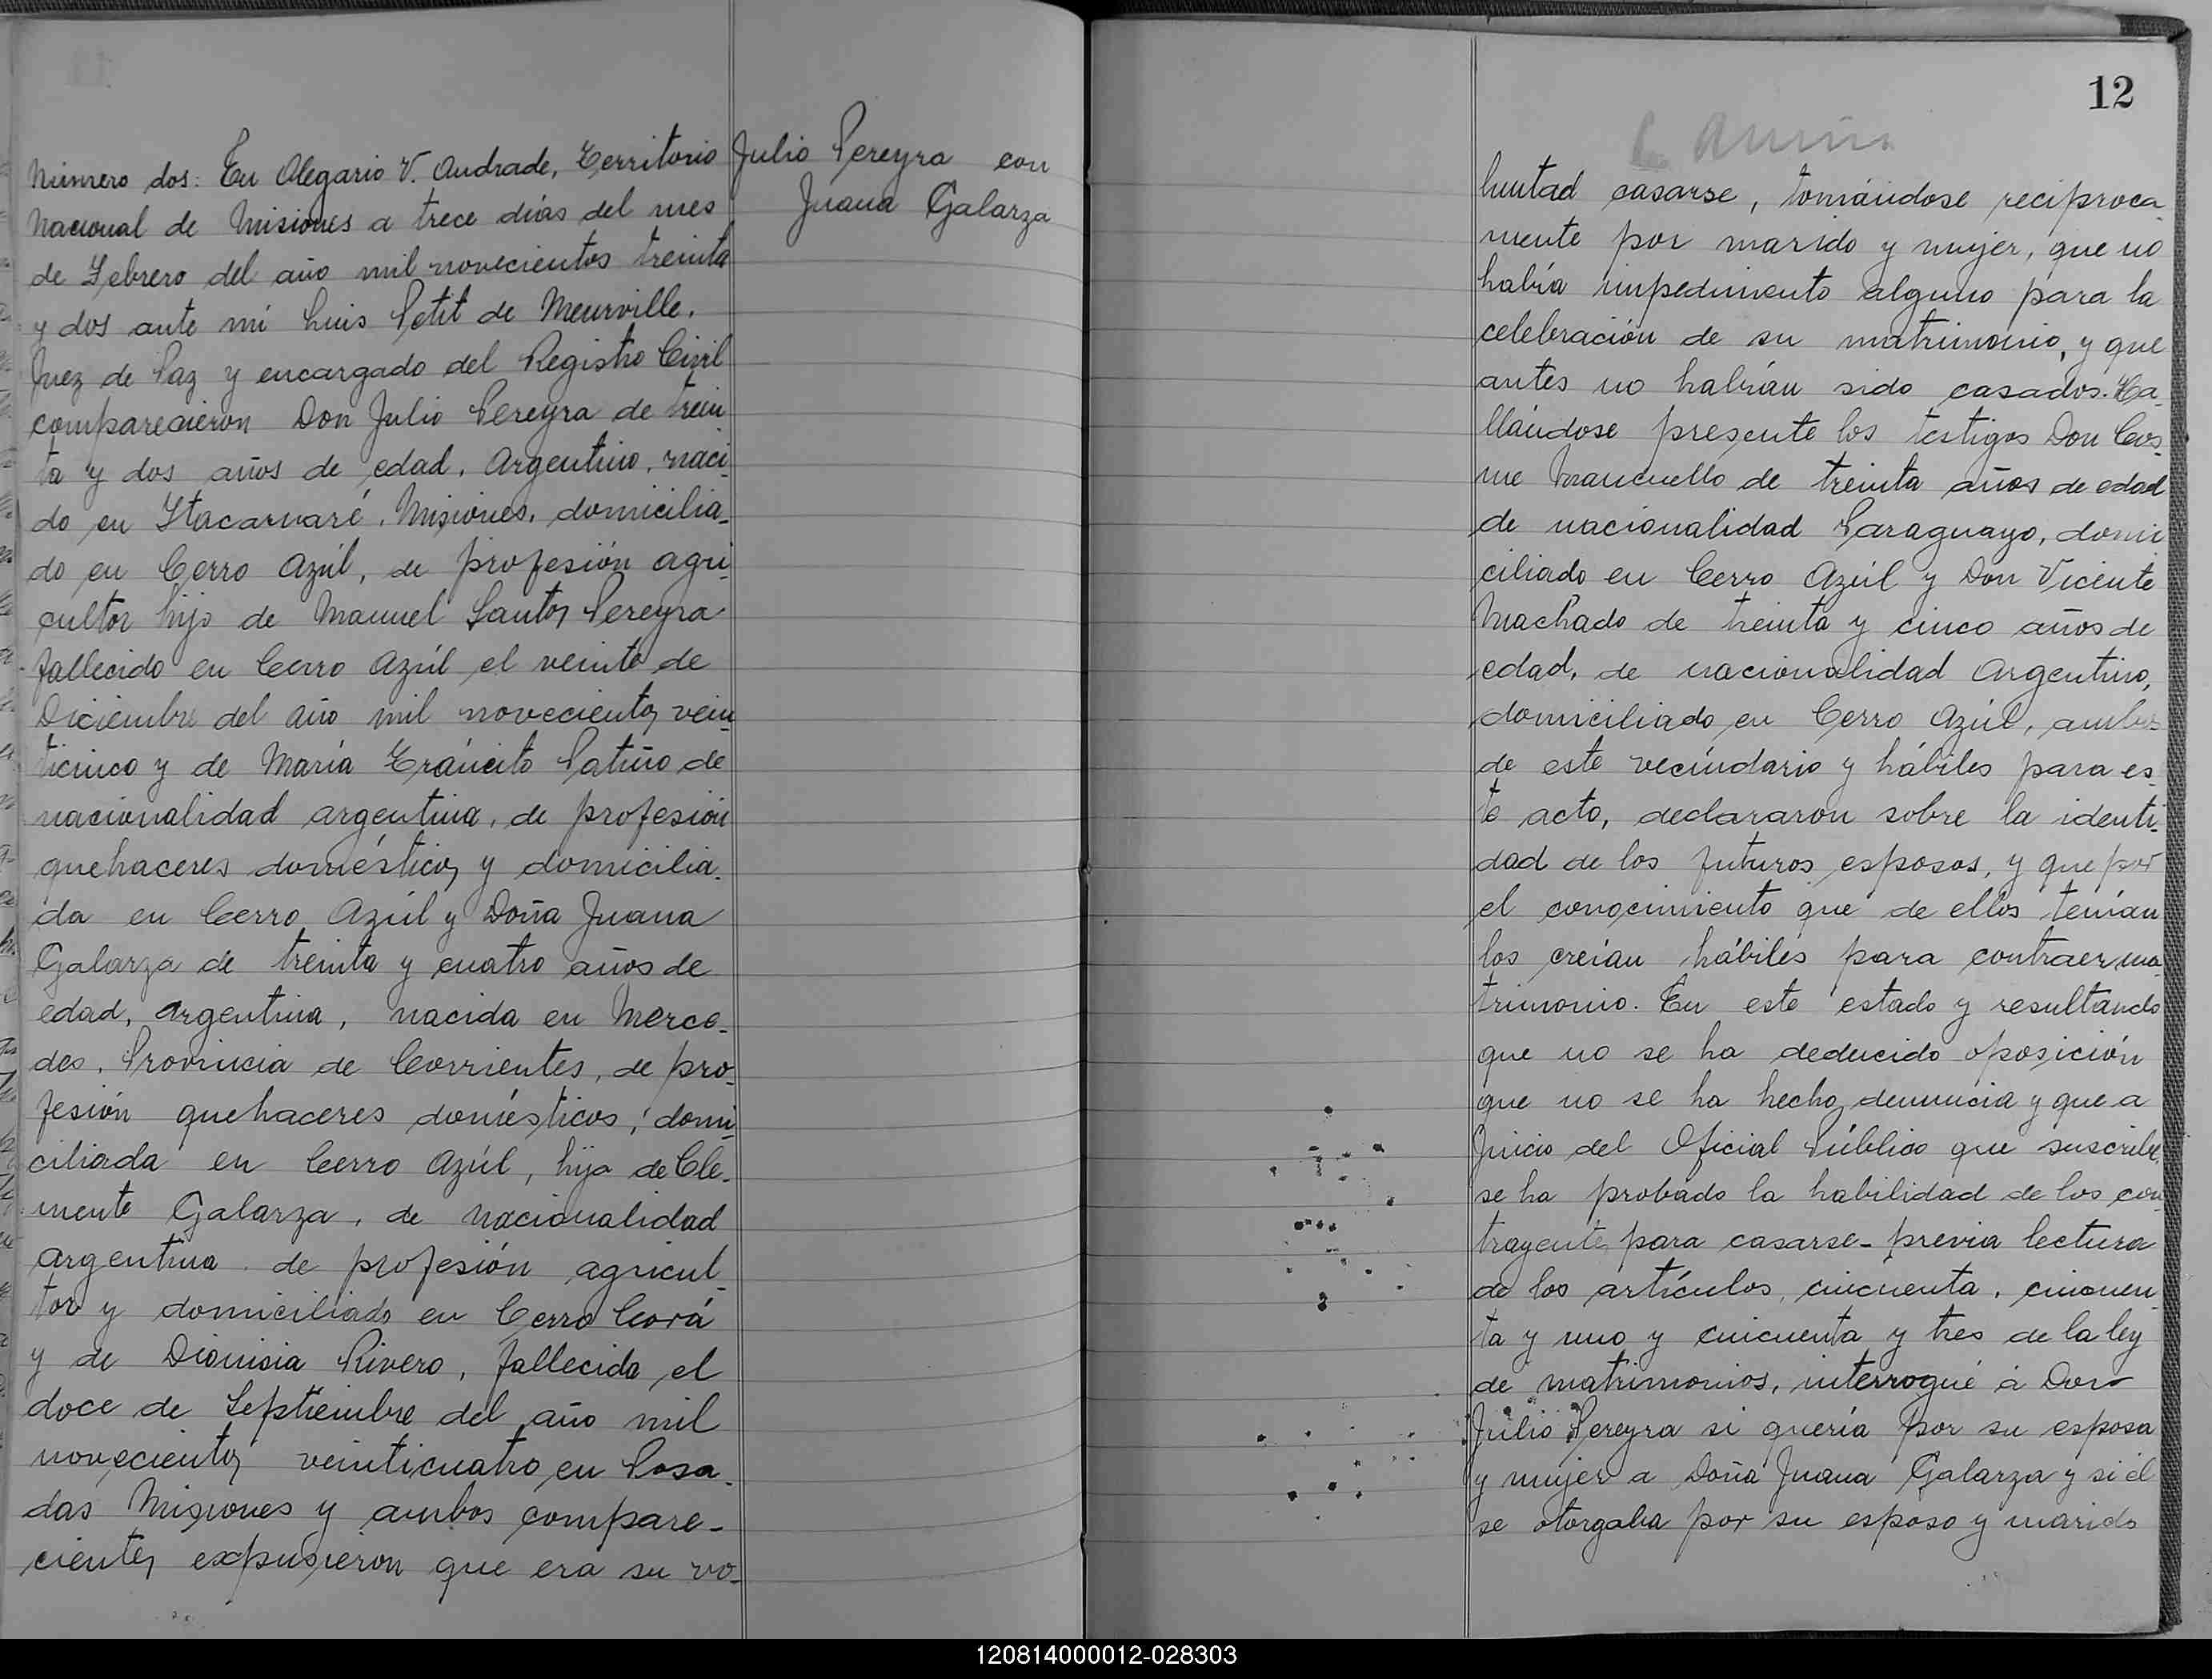 Número dos: En Olegario V. Andrade, Territorio
Nacional de Misiones a trece días del mes
de Febrero del año mil novecientos treinta
y dos ante mí Luis Petit de Meurville,
Juez de Paz y encargado del Registro Civil
comparecieron Don Julio Pereyra de trein
ta y dos años de edad, Argentino, naci-
do en Itacaruaré, Misiones, domicilia-
do en Cerro Azúl, de profesión agri-
cultor hijo de Manuel Santos Pereyra
fallecido en Cerro Azúl el veinte de
Diciembre del año mil novecientos vein-
ticinco y de María Tráncito Patiño de
nacionalidad argentina, de profesión
quehaceres domésticos y domicilia-
da en Cerro Azúl y Doña Juana
Galarza de treinta y cuatro años de
edad, argentina, nacida en Merce-
des, Provincia de Corrientes, de pro-
fesión quehaceres domésticos, domi-
ciliada en Cerro Azúl, hija de Cle-
mente Galarza, de nacionalidad
argentina de profesión agricul-
tor y domiciliado en Cerro Corá
y de Dionisia Rivero, fallecida el
doce de Septiembre del año mil
novecientos veinticuatro en Posa-
das Misiones y ambos compare-
cientes expusieron que era su vo-
Julio Pereyra con
Juana Galarza
12
luntad casarse, tomándose recíproca-
mente por marido y mujer, que no
había impedimento alguno para la
celebración de su matrimonio, y que
antes no habían sido casados. Ha-
llándose presente los testigos Don Cos-
me Mancuello de treinta años de edad
de nacionalidad Paraguayo, domi
ciliado en Cerro Azúl y Don Vicente
Machado de treinta y cinco años de
edad, de nacionalidad Argentino,
domiciliado en Cerro Azúl, ambos
de este vecindario y hábiles para es-
te acto, declararon sobre la identi-
dad de los futuros esposos, y que por
el conocimiento que de ellos tenían
los creían hábiles para contraer ma-
trimonio. En este estado y resultando
que no se ha deducido oposición
que no se ha hecho denuncia y que a
Juicio del Oficial Público que suscribe,
se ha probado la habilidad de los con
trayentes para casarse- previa lectura
de los artículos, cincuenta, cincuen-
ta y uno y cincuenta y tres de la ley
de matrimonios, interrogué á Don
Julio Pereyra si quería por su esposa
y mujer a Doña Juana Galarza y si él
se otorgaba por su esposo y marido
120814000012-028303